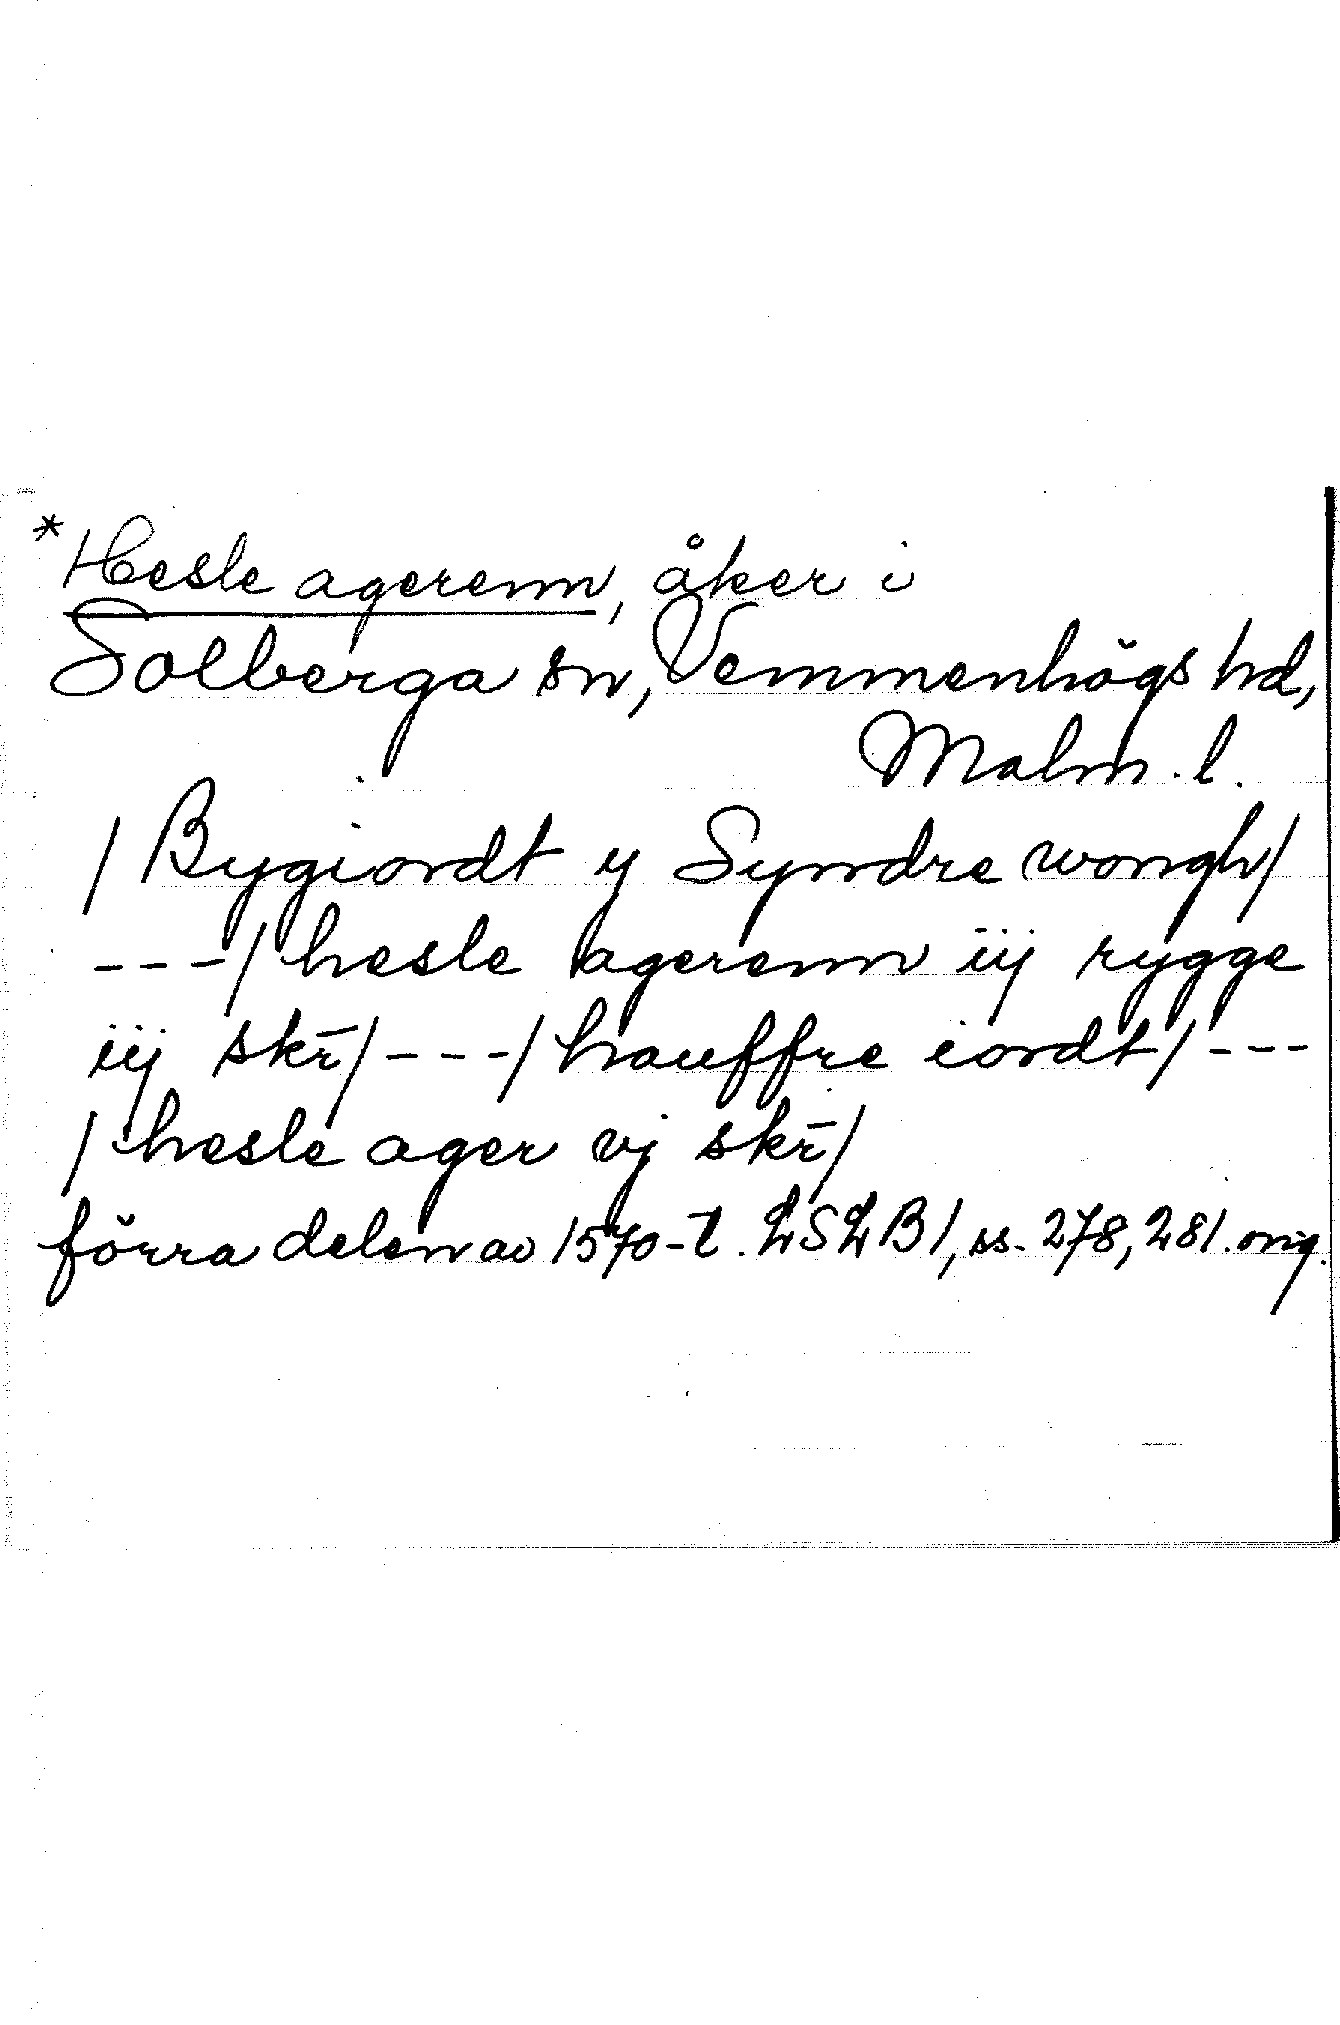 *Hesle agerenn, åker i
Solberga sn, Vemmenhögs hd,
Malm. l.
/Bygiordt y Syndre wongh/
---/hesle agerenn iij rygge
iij skr̄/---/hauffre iordt/---
/hesle ager vj skr̄/
förra delen av 1570-t. LSLB1, ss. 278, 281. orig.